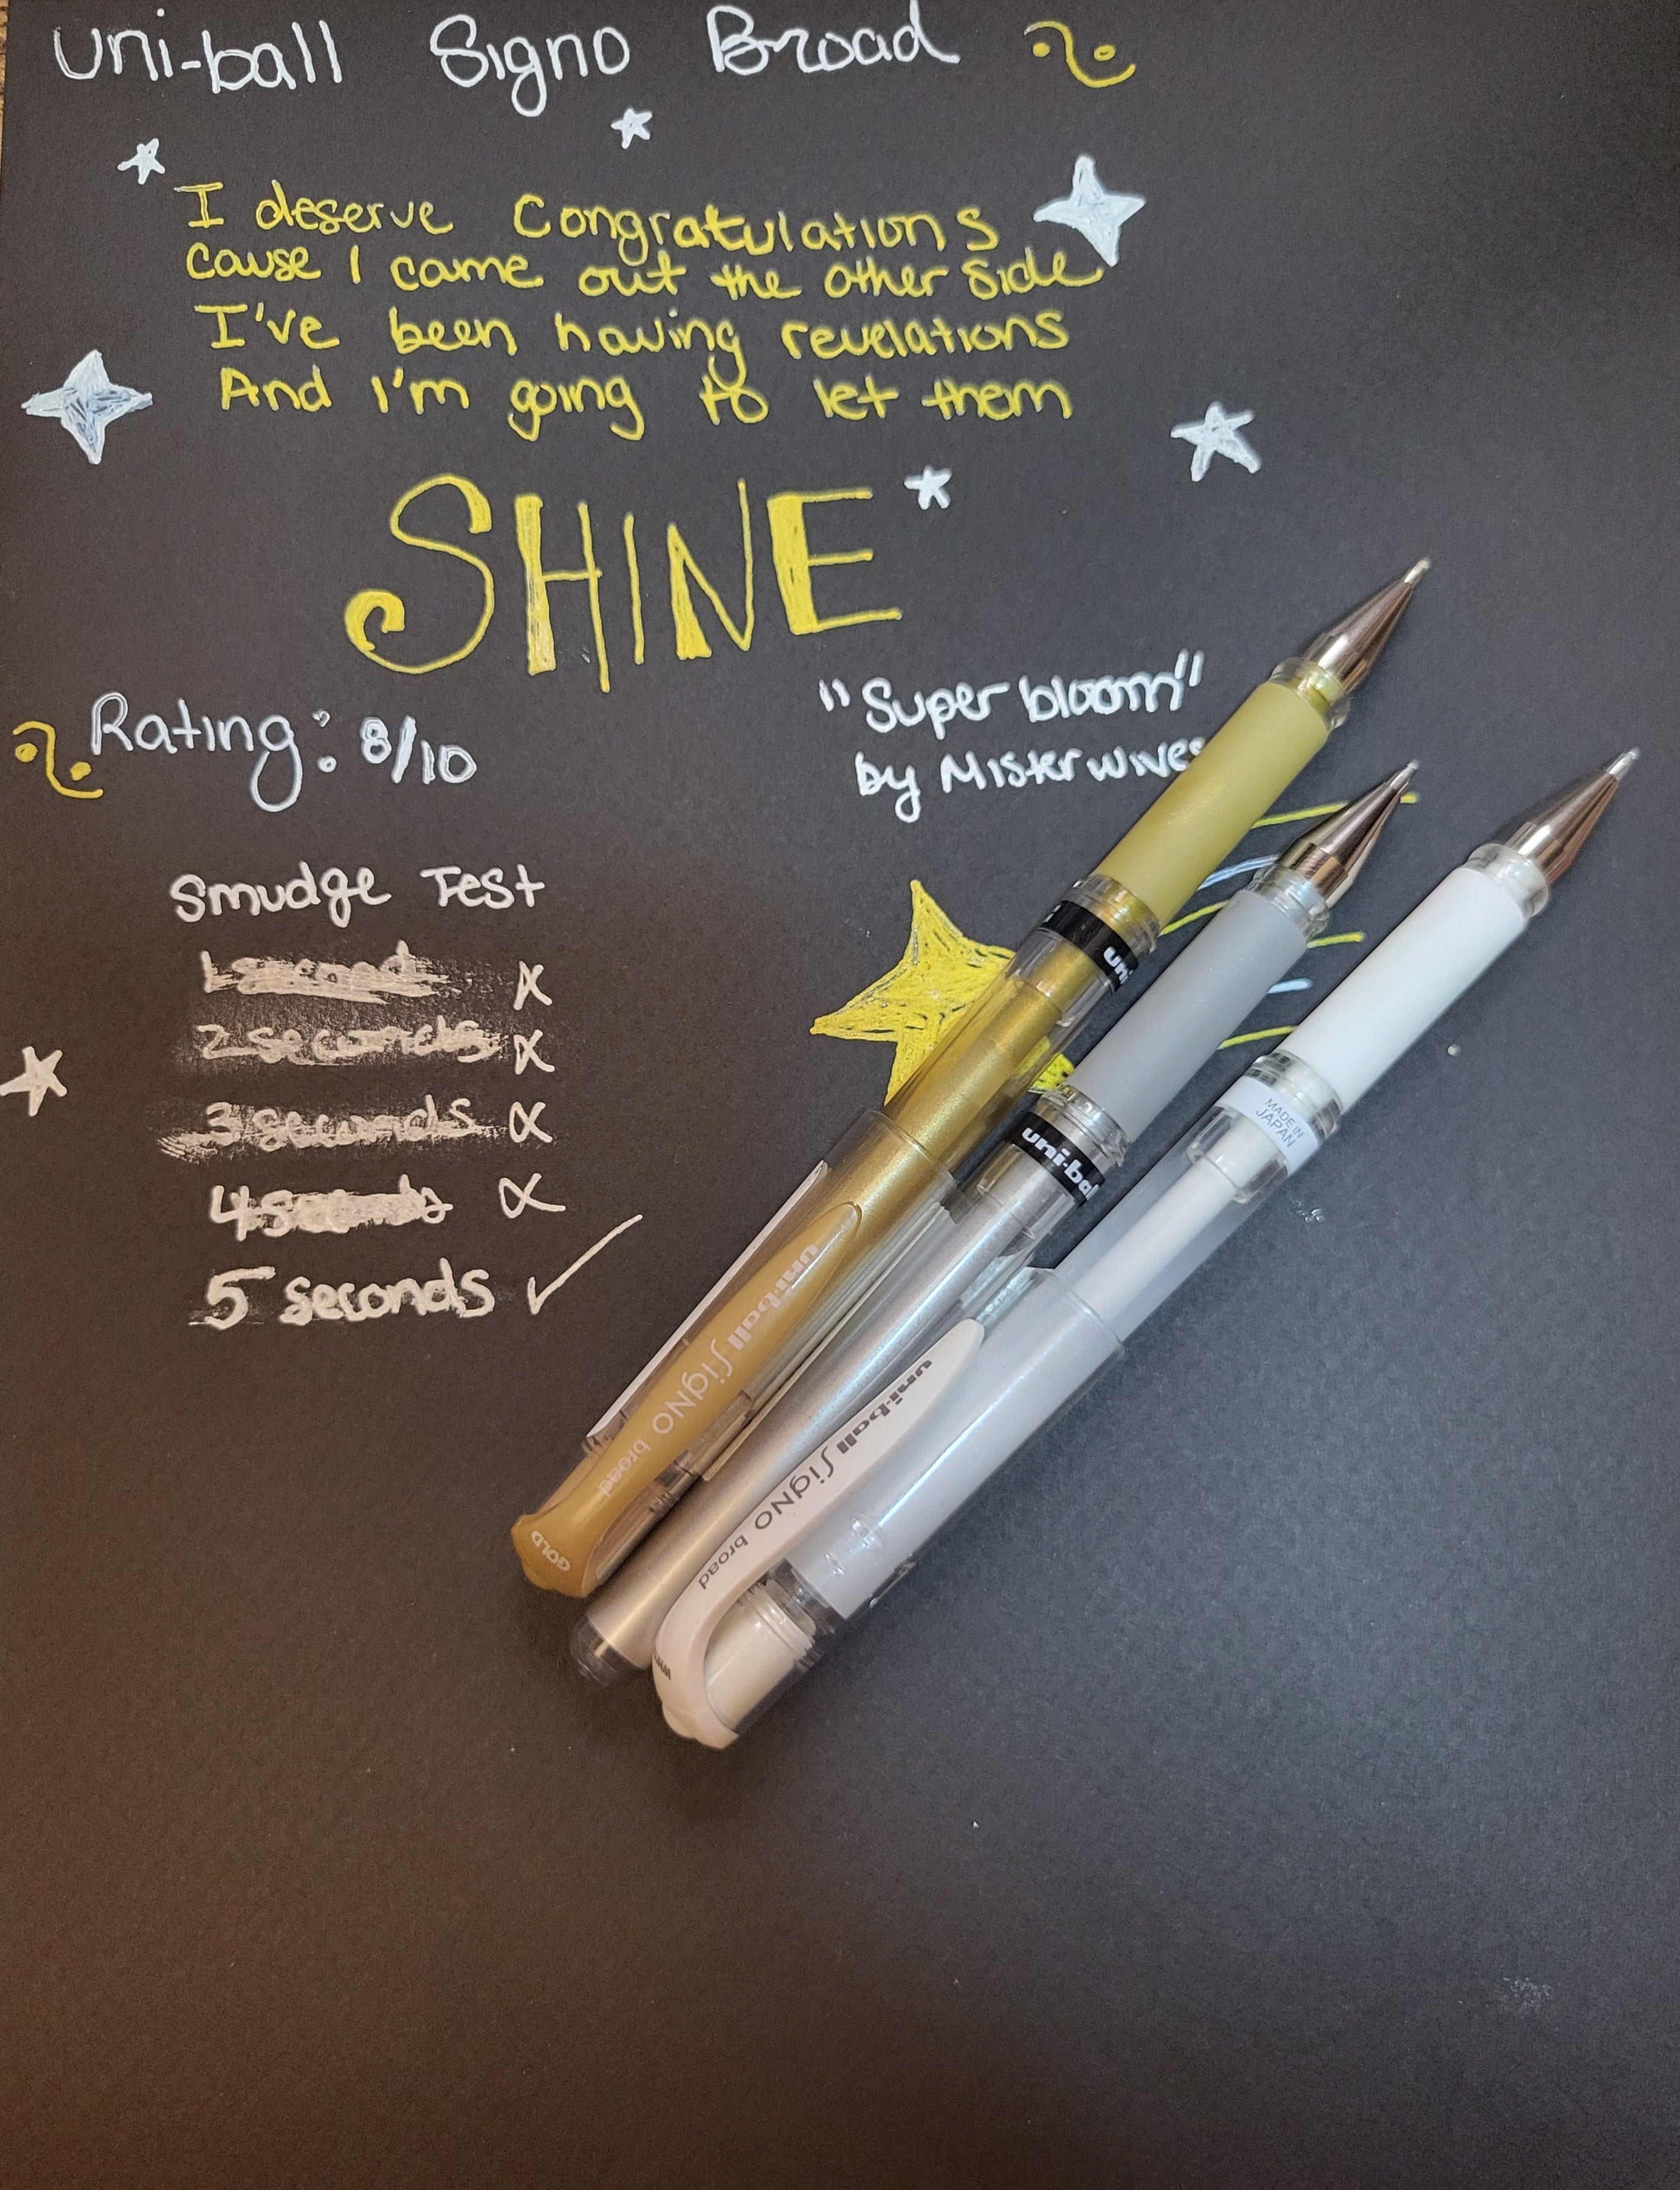 uni-ball Signo Broad
I deserve Congratulations
cause I came out the other side
I've been having revelations
And I'm going to let them
SHINE
"Super bloom"
by Mister wives
Rating: 8/10
Smudge Test
1 second x
2 seconds x
3 seconds x
4 seconds x
5 seconds ✓
uni
uni-bal
MADE IN
JAPAN
uni-ball SigNO broad
GOLD
uni-ball SigNO broad